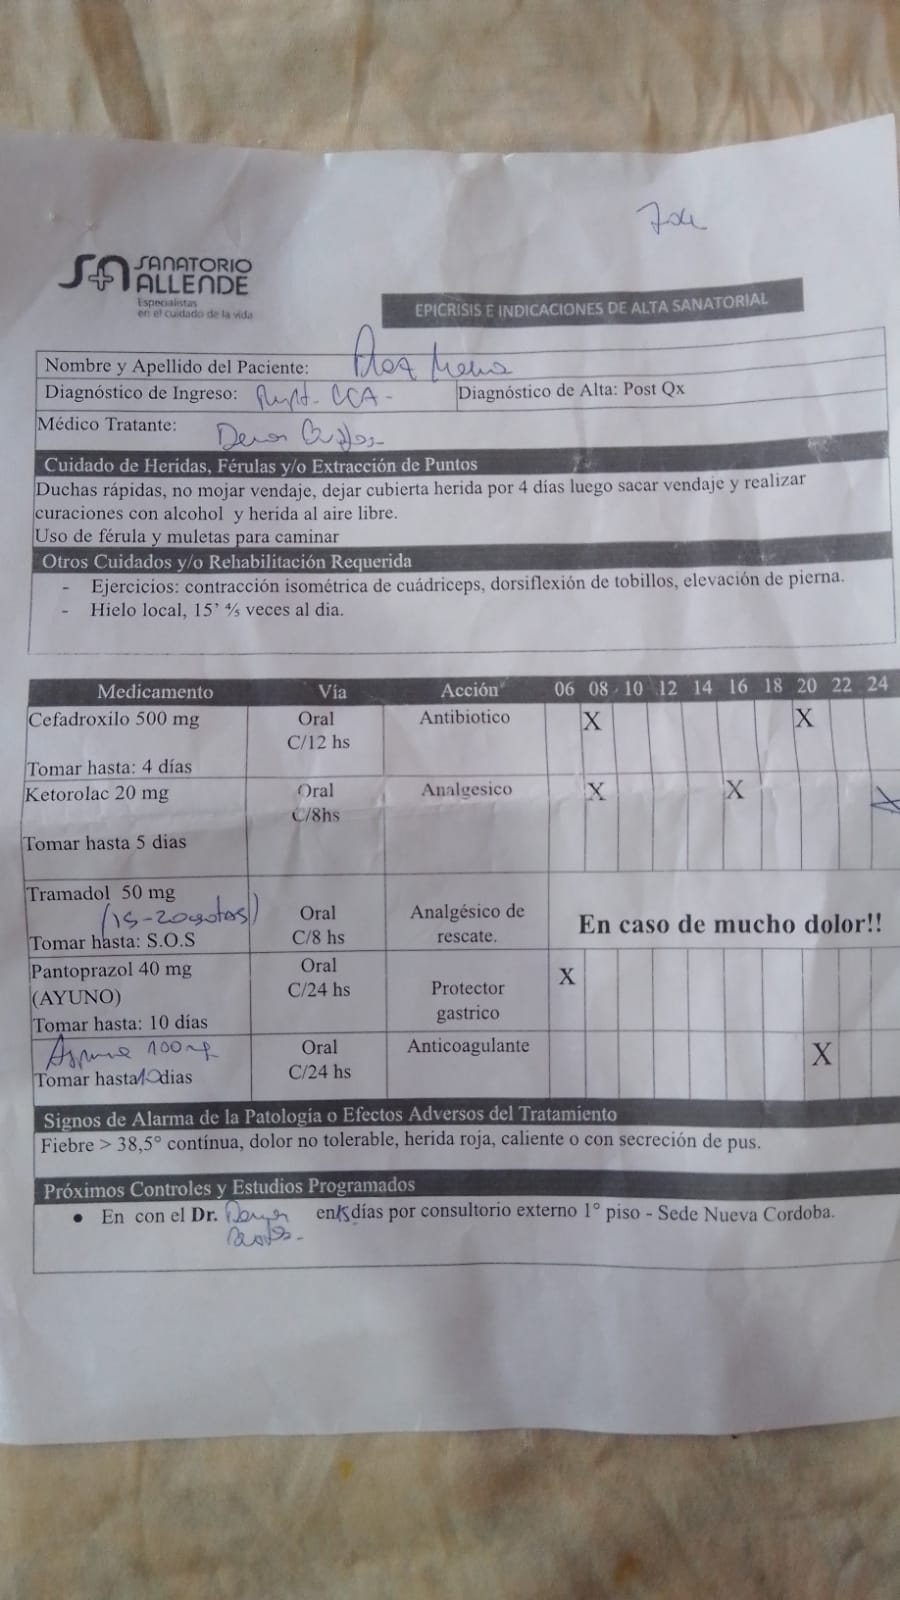 SANATORIO
ALLENDE
Especialistas
en el cuidado de la vida
EPICRISIS E INDICACIONES DE ALTA SANATORIAL
Nombre y Apellido del Paciente:
Diagnóstico de Ingreso: Diagnóstico de Alta: Post Qx
Médico Tratante:
Cuidado de Heridas, Férulas y/o Extracción de Puntos
Duchas rápidas, no mojar vendaje, dejar cubierta herida por 4 días luego sacar vendaje y realizar
curaciones con alcohol y herida al aire libre.
Uso de férula y muletas para caminar
Otros Cuidados y/o Rehabilitación Requerida
- Ejercicios: contracción isométrica de cuádriceps, dorsiflexión de tobillos, elevación de pierna.
- Hielo local, 15’ ⅘ veces al dia.
Medicamento Vía Acción 06 08 10 12 14 16 18 20 22 24
Cefadroxilo 500 mg Oral Antibiotico X X
C/12 hs
Tomar hasta: 4 días
Ketorolac 20 mg Oral Analgesico X X X
C/8hs
Tomar hasta 5 dias
Tramadol 50 mg
(15-20 gotas) Oral Analgésico de En caso de mucho dolor!!
Tomar hasta: S.O.S C/8 hs rescate.
Pantoprazol 40 mg Oral X
(AYUNO) C/24 hs Protector
Tomar hasta: 10 días gastrico
100 mg Oral Anticoagulante X
Tomar hasta 10 dias C/24 hs
Signos de Alarma de la Patología o Efectos Adversos del Tratamiento
Fiebre > 38,5° contínua, dolor no tolerable, herida roja, caliente o con secreción de pus.
Próximos Controles y Estudios Programados
• En con el Dr. en 15 días por consultorio externo 1° piso - Sede Nueva Cordoba.